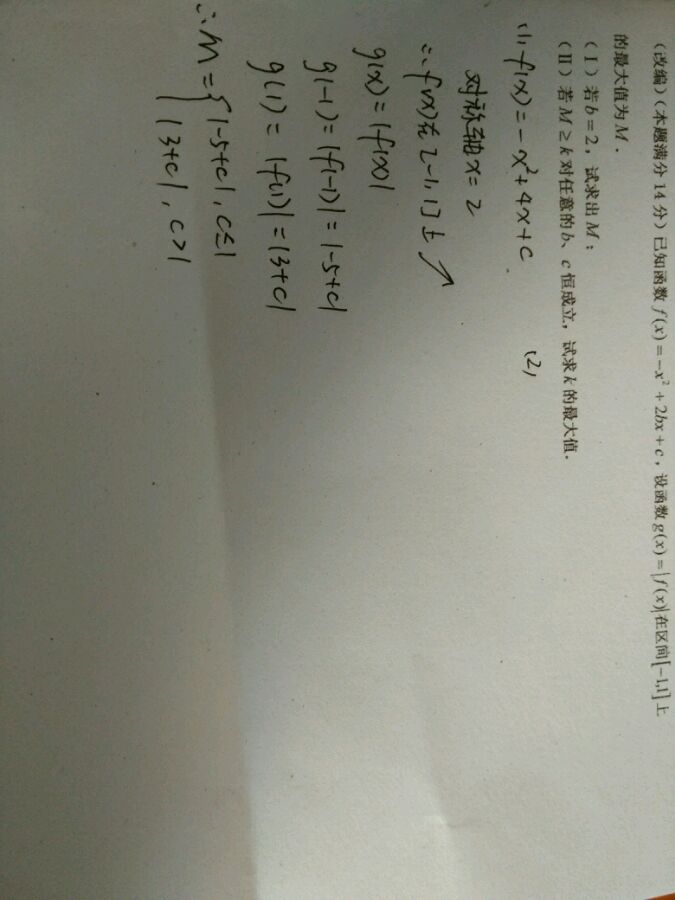 （改编）（本题满分 14 分）已知函数 f(x)=-x²+2bx+c，设函数 g(x)=|f(x)|在区间[-1,1]上
的最大值为 M．
（Ⅰ）若 b=2，试求出 M；
（Ⅱ）若 M≥k 对任意的 b、c 恒成立，试求 k 的最大值．
(1) f(x)=-x²+4x+c
对称轴 x=2
∴f(x)在[-1,1]上↗
g(x)=|f(x)|
g(-1)=|f(-1)|=|-5+c|
g(1)=|f(1)|=|3+c|
∴M={|-5+c|, c≤1
|3+c|, c>1
(2)